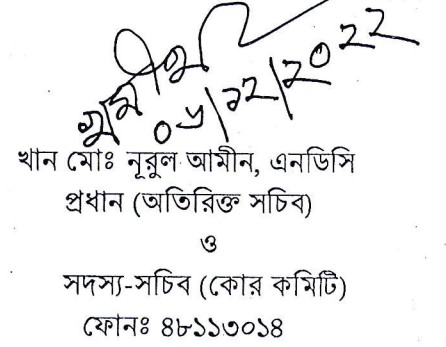 খান মোঃ নূরুল আমীন, এনডিসি
প্রধান (অতিরিক্ত সচিব)
ও
সদস্য-সচিব (কোর কমিটি)
ফোনঃ ৪৮১১৩০১৪